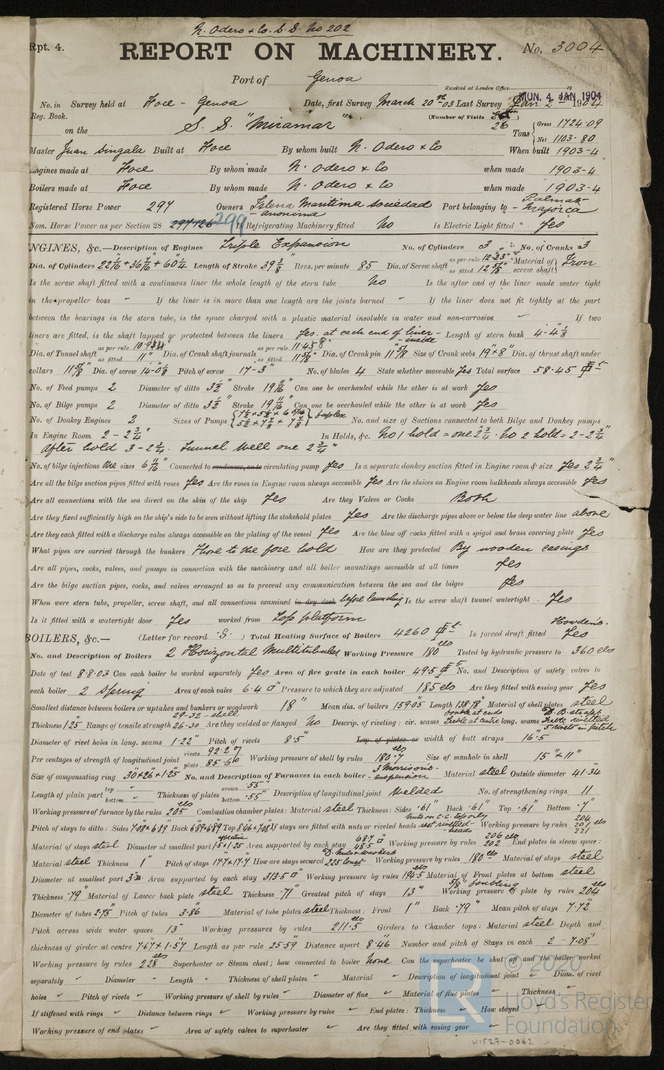 N. Odero & Co. S.S. No 202
Rpt. 4. REPORT ON MACHINERY. No. 3004
Port of Genoa
Received at London Office MON. 4 JAN 1904
No. in Survey held at Foce - Genoa Date, first Survey March 20th 03 Last Survey Jan 2 1904
Reg. Book. (Number of Visits 28)
on the S.S. "Miramar" Tons Gross 1724.09 Net 1103.80
Master Juan Singala Built at Foce By whom built N. Odero & Co When built 1903-4
Engines made at Foce By whom made N. Odero & Co when made 1903-4
Boilers made at Foce By whom made N. Odero & Co when made 1903-4
Registered Horse Power 297 Owners Islena Maritima Sociedad anonima Port belonging to Palma Majorca
Nom. Horse Power as per Section 28 299 Refrigerating Machinery fitted No Is Electric Light fitted Yes
ENGINES, &c.—Description of Engines Triple Expansion No. of Cylinders 3 No. of Cranks 3
Dia. of Cylinders Length of Stroke 39 3/8" Revs. per minute 85 Dia. of Screw shaft as per rule as fitted 12 7/8" Material of screw shaft Iron
Is the screw shaft fitted with a continuous liner the whole length of the stern tube No Is the after end of the liner made water tight
in the propeller boss " If the liner is in more than one length are the joints burned " If the liner does not fit tightly at the part
between the bearings in the stern tube, is the space charged with a plastic material insoluble in water and non-corrosive " If two
liners are fitted, is the shaft lapped or protected between the liners Yes. at each end of liner - inside Length of stern bush 4-4 1/8
Dia. of Tunnel shaft as per rule as fitted 11" Dia. of Crank shaft journals as per rule 11.458" as fitted Dia. of Crank pin 11 7/8 Size of Crank webs 19"+8" Dia. of thrust shaft under
collars 11 7/8 Dia. of screw 14-0 Pitch of screw 17-3" No. of blades 4 State whether moveable Yes Total surface 58.45
No. of Feed pumps 2 Diameter of ditto 3 1/2" Stroke Can one be overhauled while the other is at work Yes
No. of Bilge pumps 2 Diameter of ditto 3 1/2" Stroke Can one be overhauled while the other is at work Yes
No. of Donkey Engines 2 Sizes of Pumps duplex No. and size of Suctions connected to both Bilge and Donkey pumps
In Engine Room 2 - 2 3/4" In Holds, &c. No 1 hold = one 2 3/4" No 2 hold = 2 - 2 3/4"
After hold 3 - 2 3/4". Tunnel well one 2 3/4"
No. of bilge injections one sizes Connected to condenser, or to circulating pump Yes Is a separate donkey suction fitted in Engine room & size Yes 2 3/4"
Are all the bilge suction pipes fitted with roses Yes Are the roses in Engine room always accessible Yes Are the sluices on Engine room bulkheads always accessible Yes
Are all connections with the sea direct on the skin of the ship Yes Are they Valves or Cocks Both
Are they fixed sufficiently high on the ship's side to be seen without lifting the stokehold plates Yes Are the discharge pipes above or below the deep water line above
Are they each fitted with a discharge valve always accessible on the plating of the vessel Yes Are the blow off cocks fitted with a spigot and brass covering plate Yes
What pipes are carried through the bunkers Those to the fore hold How are they protected By wooden casings
Are all pipes, cocks, valves, and pumps in connection with the machinery and all boiler mountings accessible at all times Yes
Are the bilge suction pipes, cocks, and valves arranged so as to prevent any communication between the sea and the bilges Yes
When were stern tube, propeller, screw shaft, and all connections examined in dry dock before launching Is the screw shaft tunnel watertight Yes
Is it fitted with a watertight door Yes worked from Top platform
BOILERS, &c.— (Letter for record S) Total Heating Surface of Boilers 4260 Is forced draft fitted Howden's Yes
No. and Description of Boilers 2 Horizontal Multitubular Working Pressure 180 lbs Tested by hydraulic pressure to 360 lbs
Date of test 8-8-03 Can each boiler be worked separately Yes Area of fire grate in each boiler 49.5 No. and Description of safety valves to
each boiler 2 Spring Area of each valve 6.40" Pressure to which they are adjusted 185 lbs Are they fitted with easing gear Yes
Smallest distance between boilers or uptakes and bunkers or woodwork 18" Mean dia. of boilers 159.05 Length 138.78" Material of shell plates steel
Thickness 1.25" Range of tensile strength 29-32 - shell 26-30 Are they welded or flanged No Descrip. of riveting: cir. seams long. seams
Diameter of rivet holes in long. seams 1.22" Pitch of rivets 8.5" Lap of plates or width of butt straps 16.5"
Per centages of strength of longitudinal joint rivets 92.27 plate 85.60 Working pressure of shell by rules 180.7 lbs Size of manhole in shell 15"+11"
Size of compensating ring 30+26+1.25" No. and Description of Furnaces in each boiler 3 Morrisons suspension Material steel Outside diameter 41.34
Length of plain part top bottom Thickness of plates crown .55" bottom .55" Description of longitudinal joint welded No. of strengthening rings 11
Working pressure of furnace by the rules 205 lbs Combustion chamber plates: Material steel Thickness: Sides .61" Back .61" Top .61" Bottom .7"
Pitch of stays to ditto: Sides Back Top If stays are fitted with nuts or riveted heads Working pressure by rules
Material of stays steel Diameter at smallest part Area supported by each stay Working pressure by rules End plates in steam space:
Material steel Thickness 1" Pitch of stays How are stays secured Working pressure by rules 180 lbs Material of stays steel
Diameter at smallest part Area supported by each stay 313.5 Working pressure by rules 194.5 Material of Front plates at bottom steel
Thickness .79" Material of Lower back plate steel Thickness .71" Greatest pitch of stays 13" Working pressure of plate by rules 204 lbs
Diameter of tubes 2.75 Pitch of tubes 3.86 Material of tube plates steel Thickness: Front 1" Back .79" Mean pitch of stays 7.72
Pitch across wide water spaces 13" Working pressures by rules 211.5 lbs Girders to Chamber tops: Material steel Depth and
thickness of girder at centre 7.67+1.57 Length as per rule 25.59 Distance apart 8.46 Number and pitch of Stays in each 2 - 7.08"
Working pressure by rules 228 lbs Superheater or Steam chest; how connected to boiler None Can the superheater be shut off and the boiler worked
separately " Diameter " Length " Thickness of shell plates " Material " Description of longitudinal joint " Diam. of rivet
holes " Pitch of rivets " Working pressure of shell by rules " Diameter of flue " Material of flue plates " Thickness "
If stiffened with rings " Distance between rings " Working pressure by rules " End plates: Thickness " How stayed "
Working pressure of end plates " Area of safety valves to superheater " Are they fitted with easing gear "
© 2020
LR Lloyd's Register
Foundation
W1527-0042